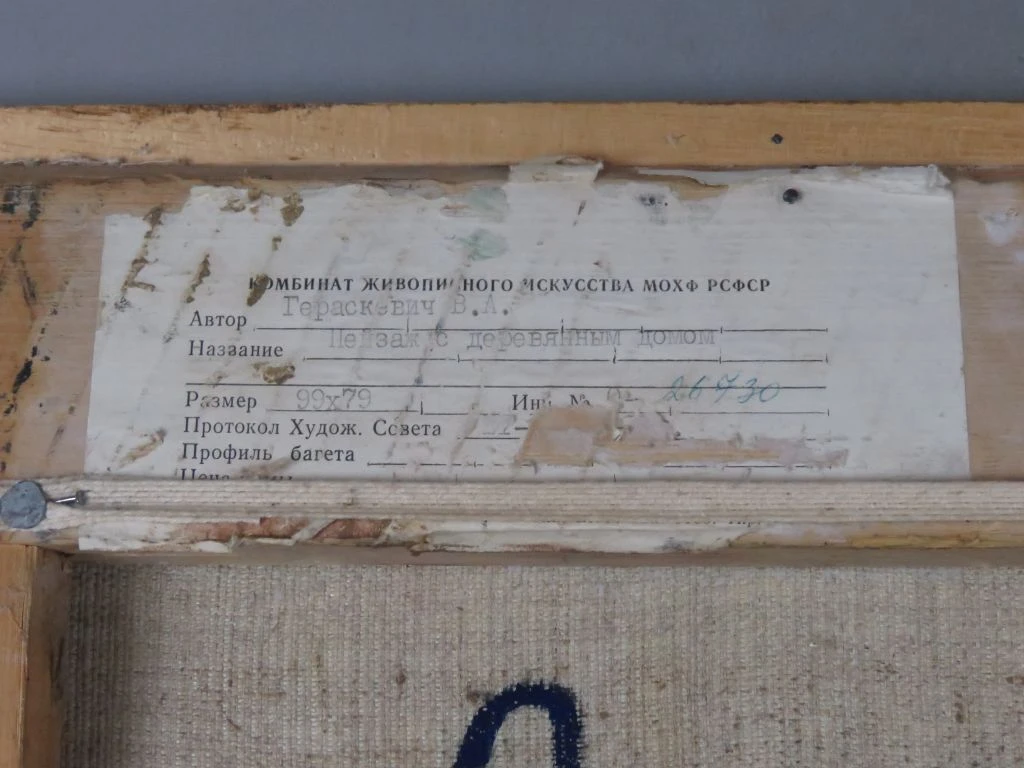 КОМБИНАТ ЖИВОПИСНОГО ИСКУССТВА МОХФ РСФСР
Автор Гераскевич В.А.
Название Пейзаж с деревянным домом
Размер 99х79 Инв. № 26730
Протокол Худож. Совета
Профиль багета
Цена